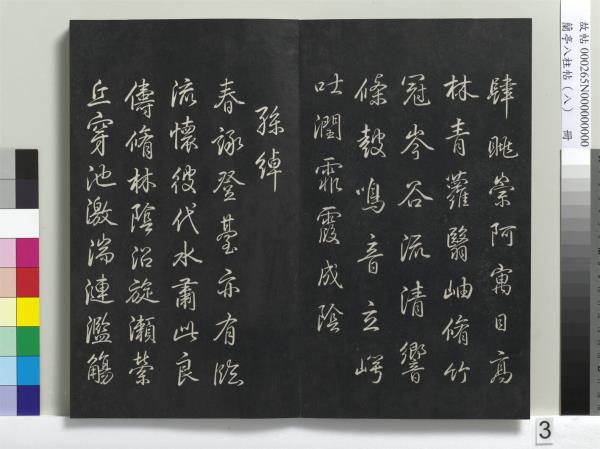 肆眺崇阿寓目高
林青蘿翳岫脩竹
冠岑谷流清響
條鼓鳴音玄崿
吐潤霏霞成陰
孫綽
春詠登臺亦有臨
流懷彼伐木肅此良
儔脩林陰沼旋瀨縈
丘穿池激湍連濫觴
故帖 000265N000000000
蘭亭八柱帖（八） 冊
3